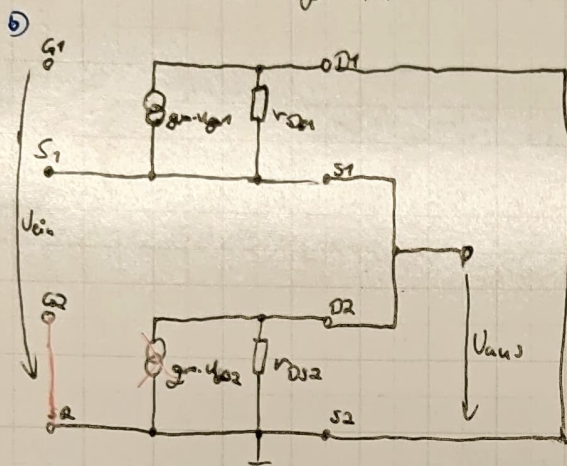 b)
G1
D1
gm·Ugs1
rDS1
S1
S1
Uein
G2
D2
gm·Ugs2
rDS2
Uaus
S2
S2